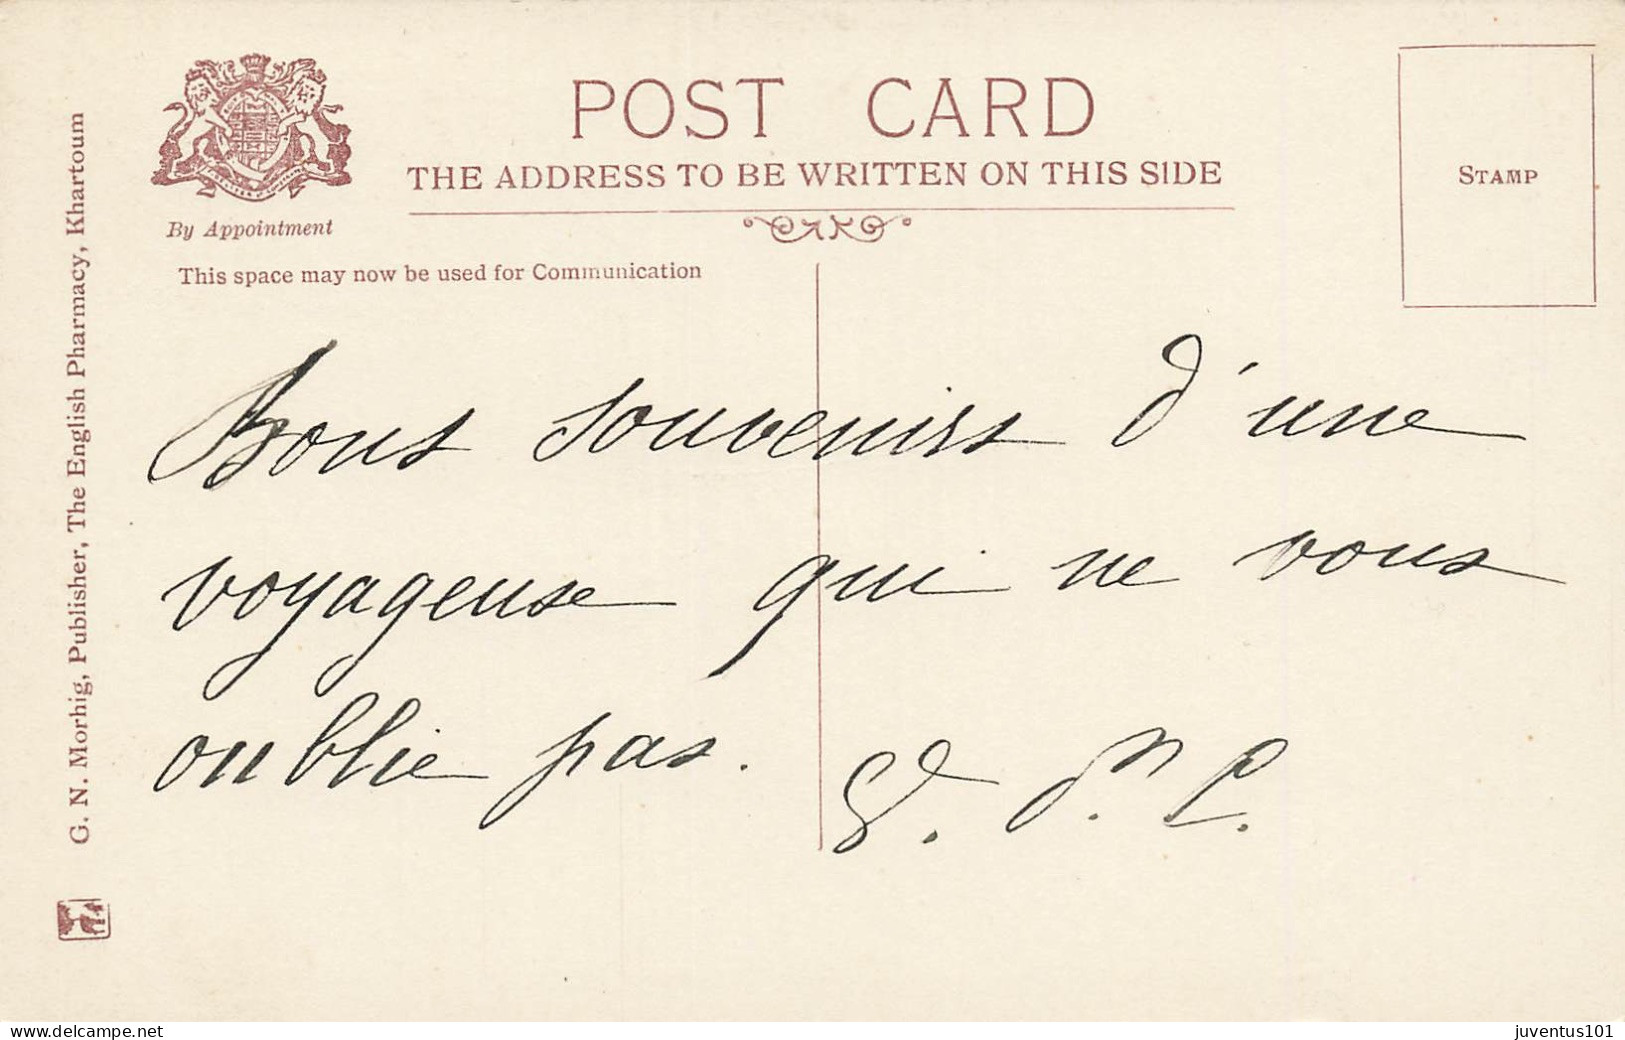 POST CARD
THE ADDRESS TO BE WRITTEN ON THIS SIDE
STAMP
By Appointment
This space may now be used for Communication
G. N. Morhig, Publisher, The English Pharmacy, Khartoum
Bons souvenirs d'une
voyageuse qui ne vous
oublie pas.
www.delcampe.net
juventus101